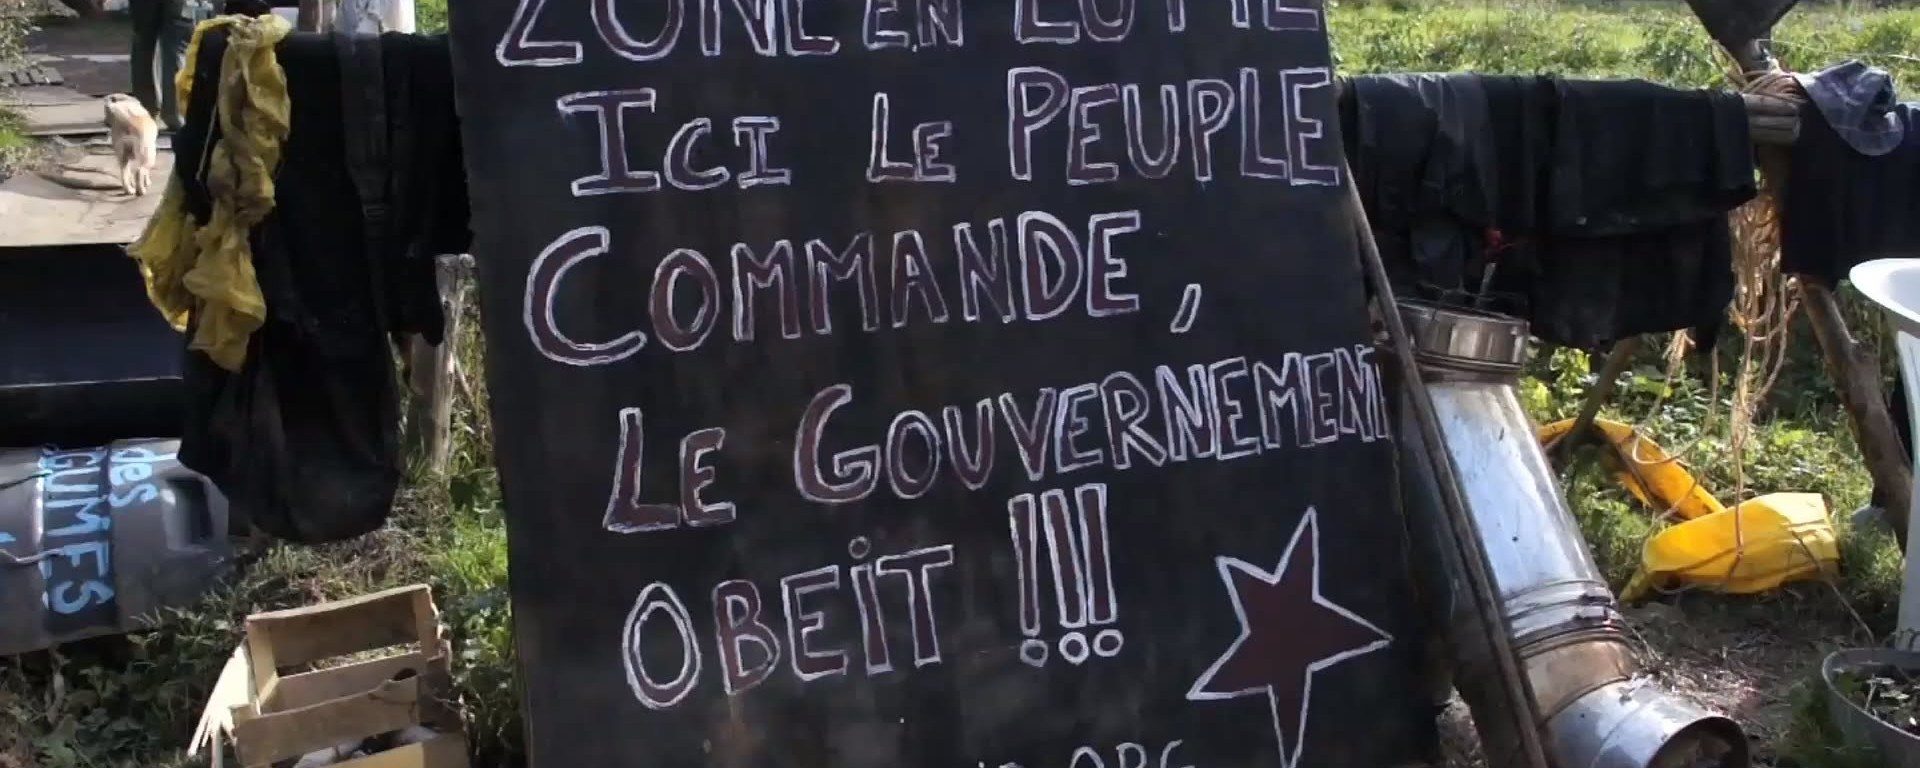 ZONE EN LUTTE
ICI LE PEUPLE
COMMANDE,
LE GOUVERNEMENT
OBEiT !!!
.ORG
des
LEGUMES